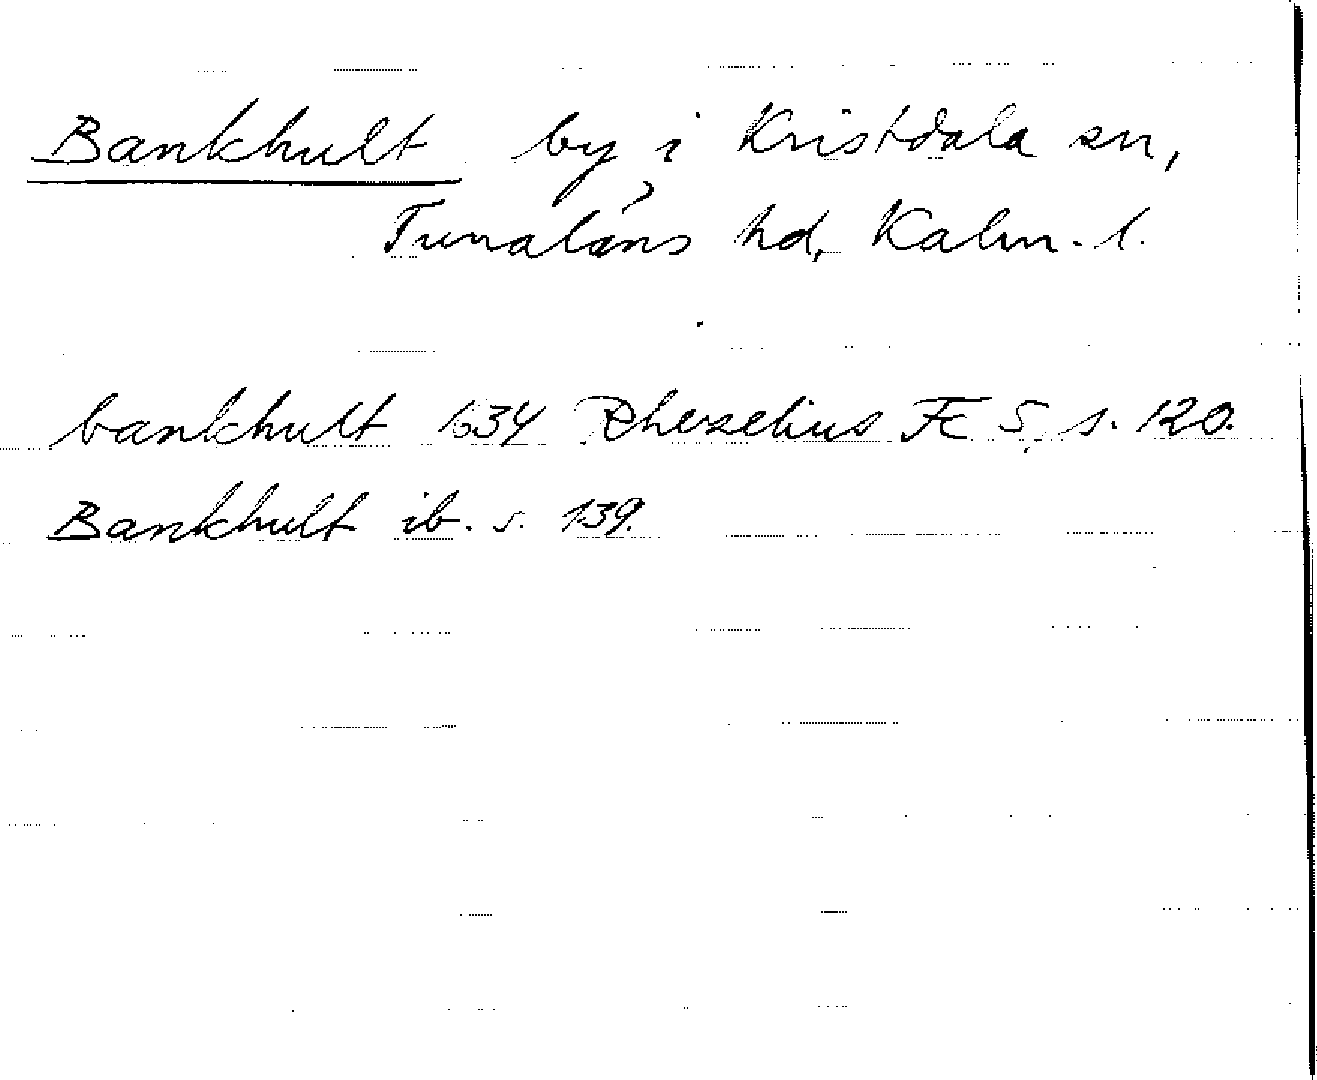 Bankhult by i Kristdala sn,
Tunaläns hd, Kalm. l.
bankhult 1634 Rhezelius Fc 5, s. 120.
Bankhult ib. s. 139.